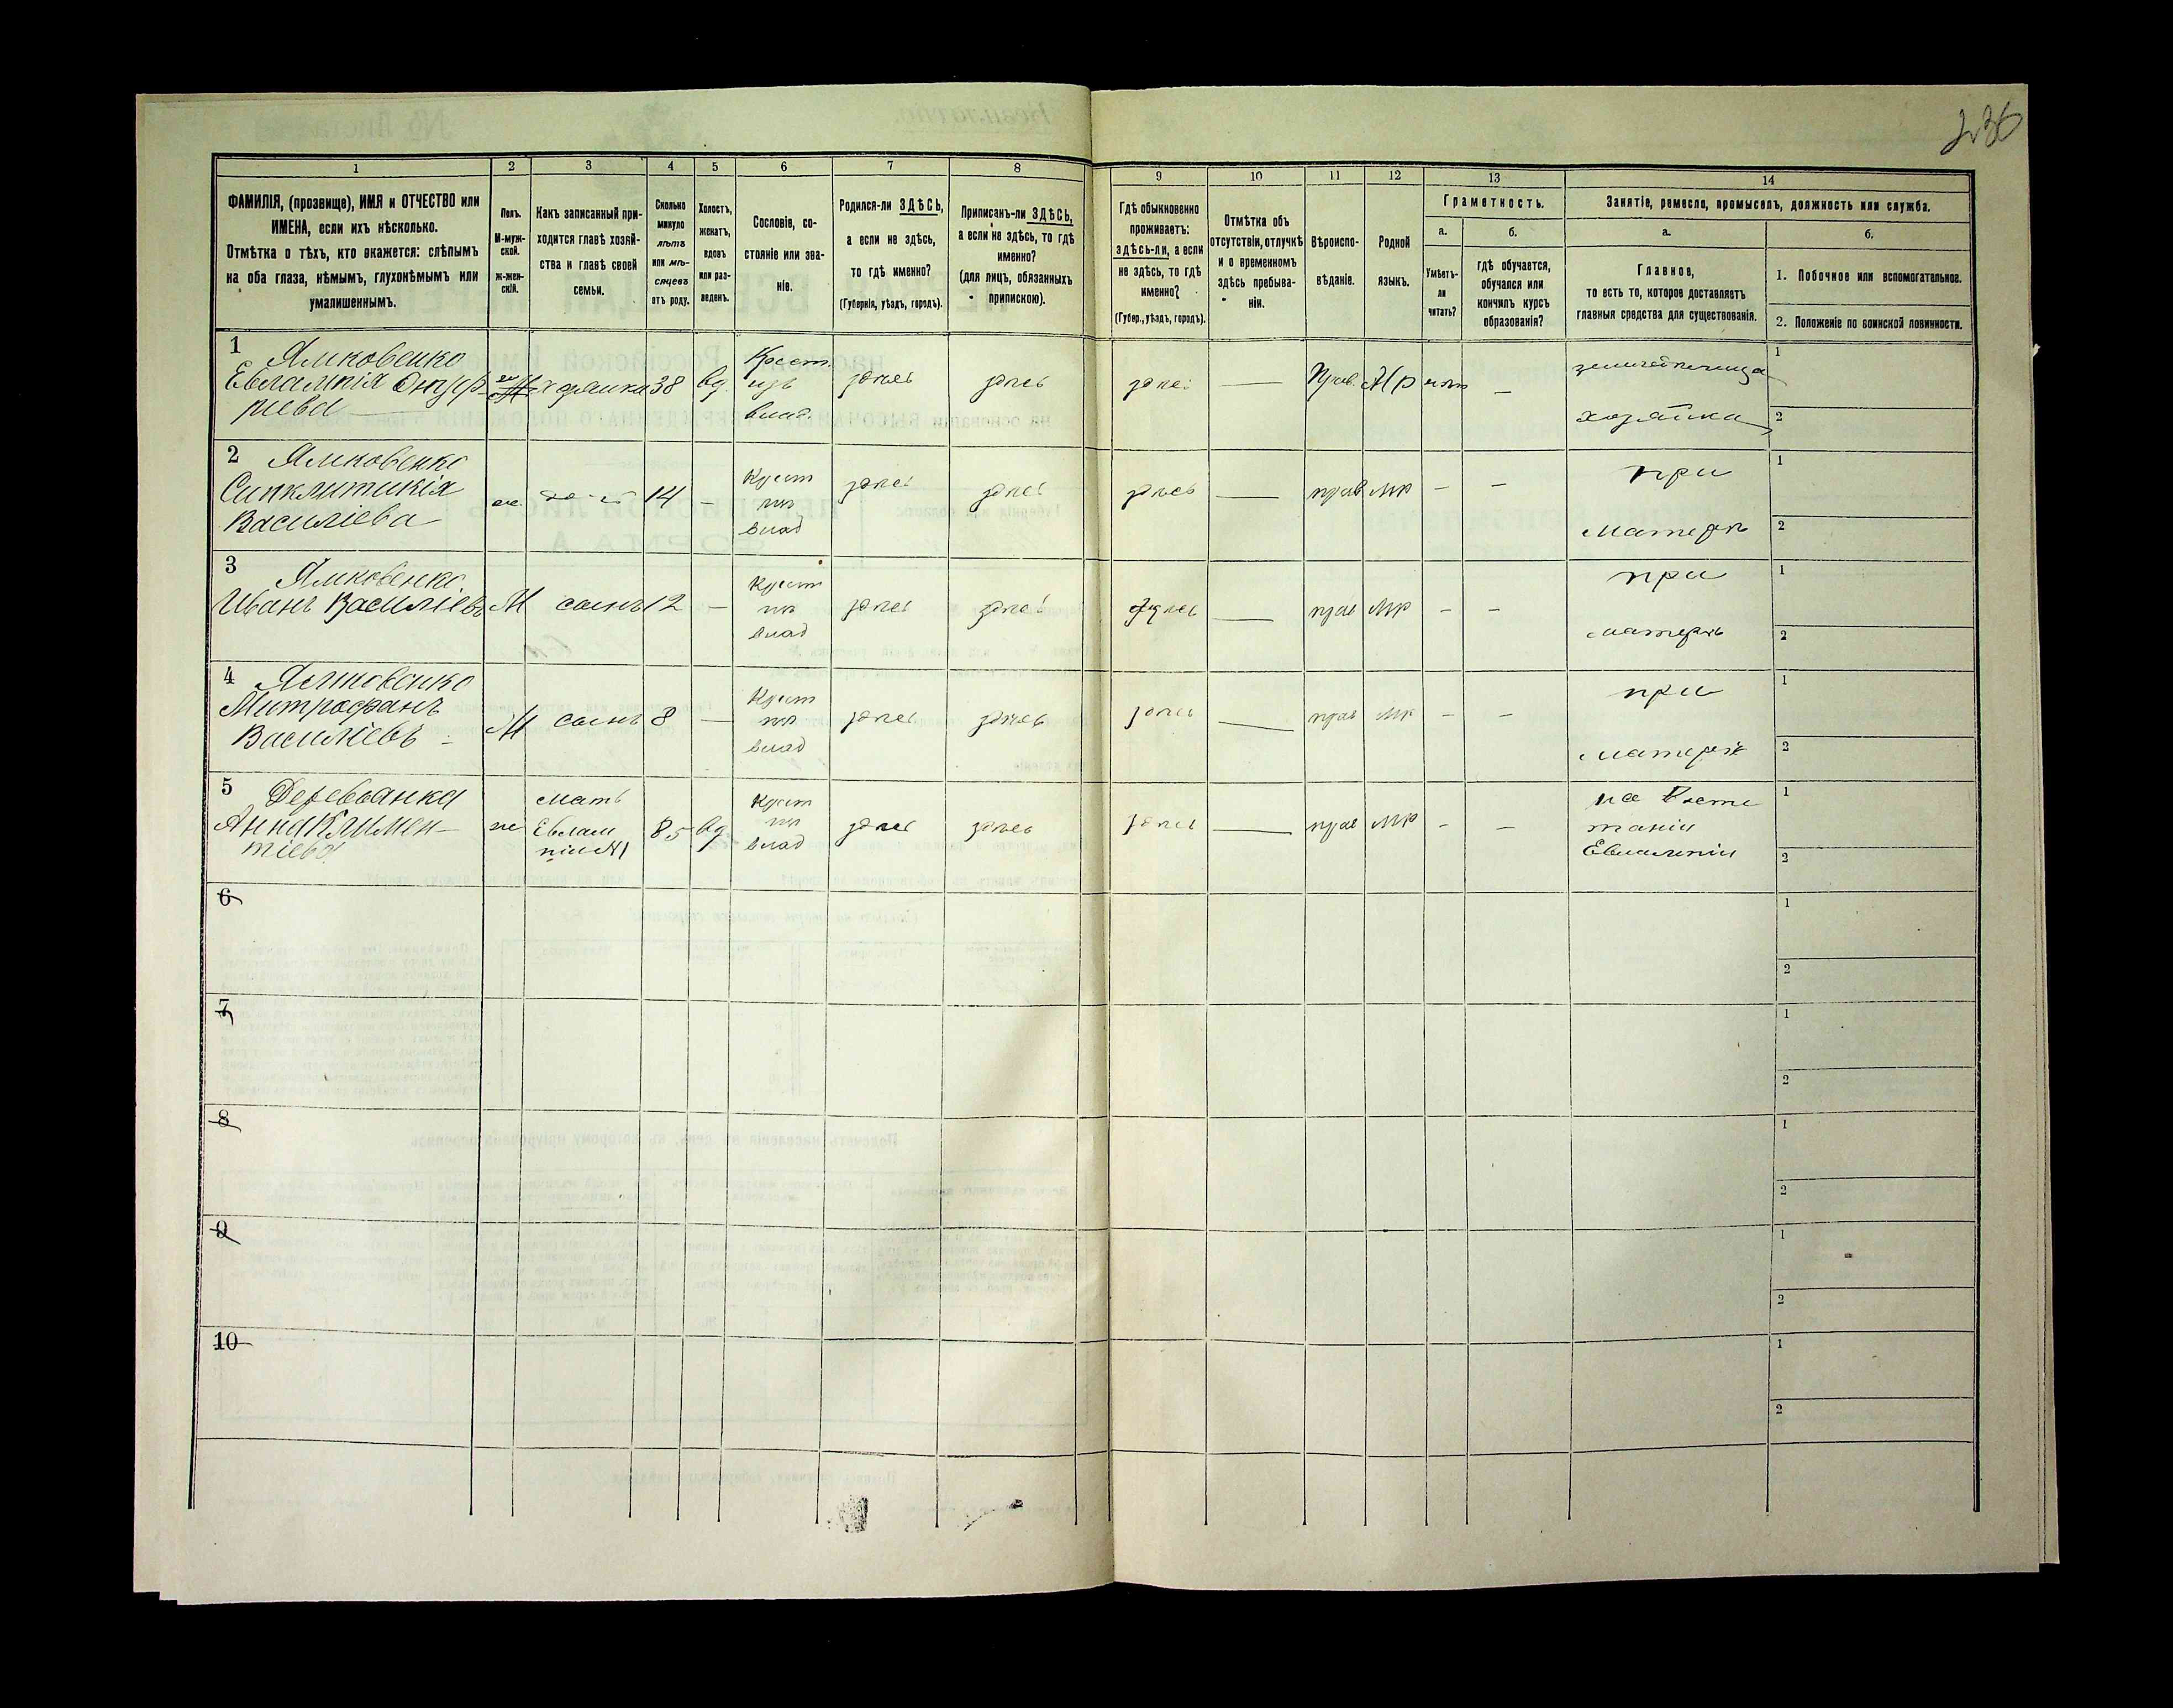 236
1
2
3
4
5
6
7
8
9
10
11
12
13
14
ФАМИЛІЯ, (прозвище), ИМЯ и ОТЧЕСТВО или
ИМЕНА, если ихъ нѣсколько.
Отмѣтка о тѣхъ, кто окажется: слѣпымъ
на оба глаза, нѣмымъ, глухонѣмымъ или
умалишеннымъ.
Полъ.
М-муж-
ской.
ж-жен-
скій.
Какъ записанный при-
ходится главѣ хозяй-
ства и главѣ своей
семьи.
Сколько
минуло
лѣтъ
или мѣ-
сяцевъ
отъ роду.
Холостъ,
женатъ,
вдовъ
или раз-
веденъ.
Сословіе, со-
стояніе или зва-
ніе.
Родился-ли ЗДѢСЬ,
а если не здѣсь,
то гдѣ именно?
(Губернія, уѣздъ, городъ).
Приписанъ-ли ЗДѢСЬ,
а если не здѣсь, то гдѣ
именно?
(для лицъ, обязанныхъ
припискою).
Гдѣ обыкновенно
проживаетъ:
здѣсь-ли, а если
не здѣсь, то гдѣ
именно?
(Губер., уѣздъ, городъ).
Отмѣтка объ
отсутствіи, отлучкѣ
и о временномъ
здѣсь пребыва-
ніи.
Вѣроиспо-
вѣданіе.
Родной
языкъ.
Грамотность.
а.
Умѣетъ-
ли
читать?
б.
гдѣ обучается,
обучался или
кончилъ курсъ
образованія?
Занятіе, ремесло, промыселъ, должность или служба.
а.
Главное,
то есть то, которое доставляетъ
главныя средства для существованія.
б.
1. Побочное или вспомогательное.
2. Положеніе по воинской повинности.
1
Ямковенко
Евлампія
38
вд.
Крест.
изъ
влад.
здѣсь
здѣсь
здѣсь
—
Прав.
нѣтъ
—
хозяйка
1
2
2
Ямковенко
Синклитикія
Василіева
ж
14
—
Крест
влад
здѣсь
здѣсь
здѣсь
—
прав
мр
—
—
при
матери
1
2
3
Ямковенко
Иванъ Василіевъ
М
сынъ
12
—
Крест
влад
здѣсь
здѣсь
здѣсь
—
прав
мр
—
—
при
матери
1
2
4
Ямковенко
Митрофанъ
Василіевъ
М
сынъ
8
—
Крест
влад
здѣсь
здѣсь
здѣсь
—
прав
мр
—
—
при
матери
1
2
5
Деревьянка
Анна Климен-
тіева
ж
мать
Евлам
піи №1
85
вд
Крест
влад
здѣсь
здѣсь
здѣсь
—
прав
мр
—
—
Евлампіи
1
2
6
1
2
7
1
2
8
1
2
9
1
2
10
1
2